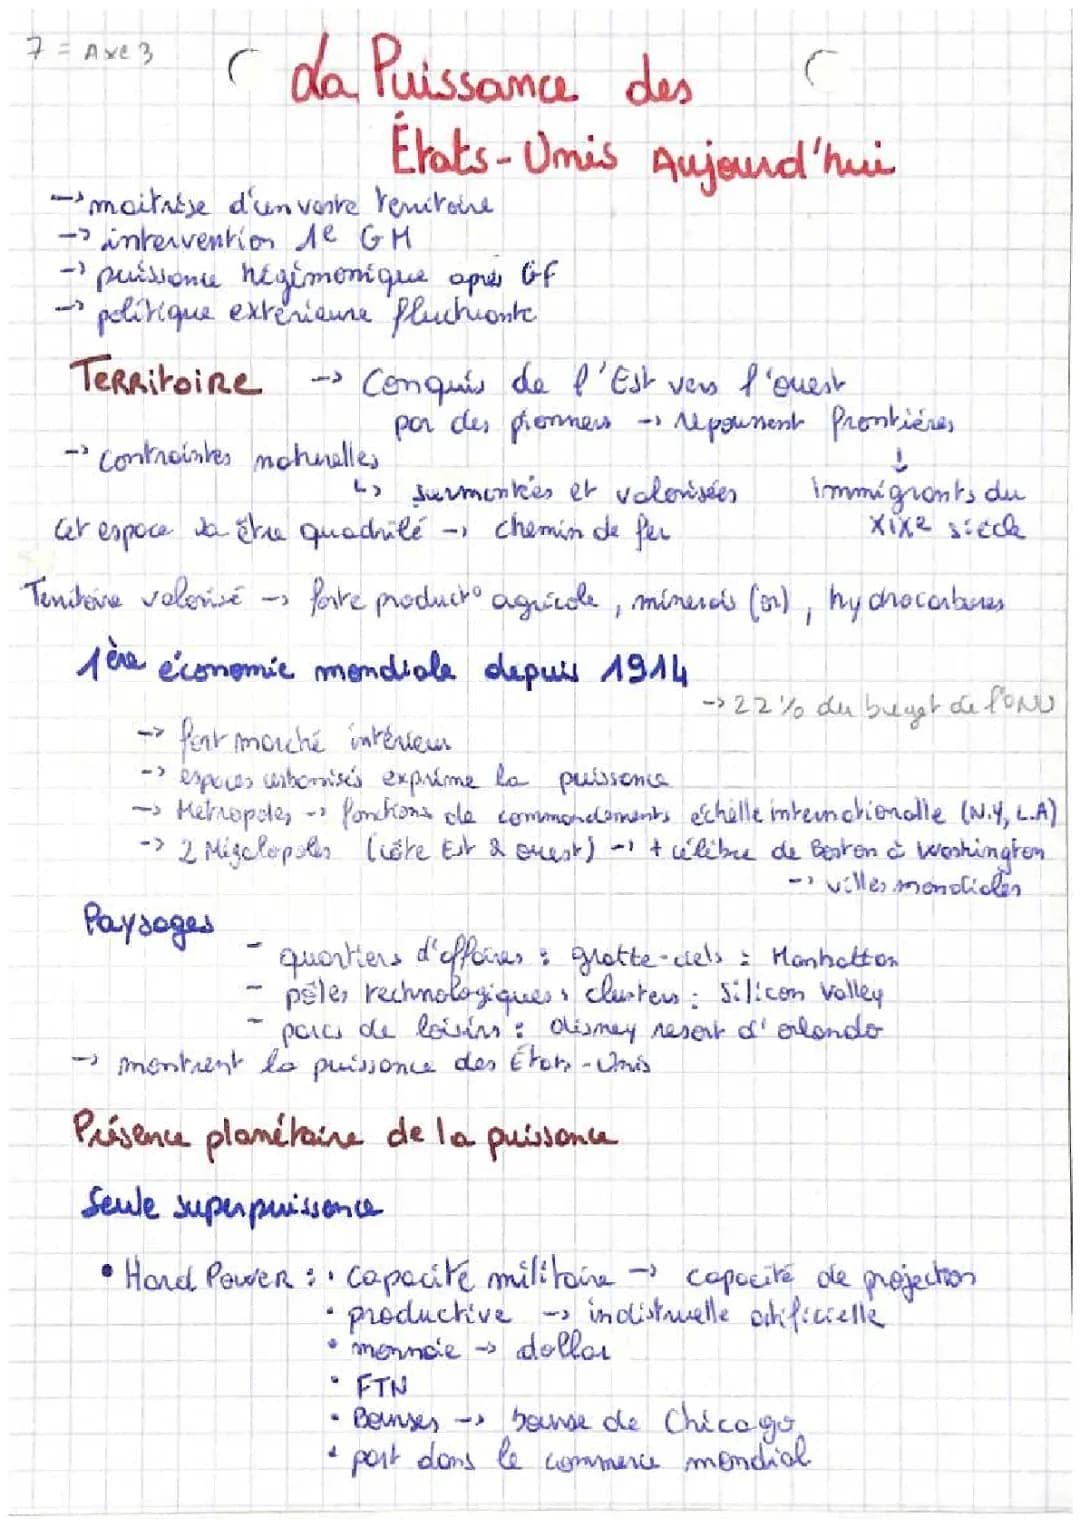 7 = Axe 3
La Puissance des
États-Unis Aujourd'hui
-> maitrise d'un vaste territoire
-> intervention 1e GM
-> puissance hégémonique après GF
-> politique extérieure fluctuante
TERRitoiRE -> Conquis de l'Est vers l'ouest
par des pionners -> repoussent frontières
-> contraintes naturelles
↳ surmontées et valorisées
↓
immigrants du
XIXe siècle
Cet espace va être quadrillé -> chemin de fer
Territoire valorisé -> forte product° agricole, minerais (or), hydrocarbures
1ère économie mondiale depuis 1914
-> 22% du buget de l'ONU
-> fort marché intérieur
-> espaces urbanisés exprime la puissance
-> Métropoles -> fonctions de commandements échelle internationalle (N.Y, L.A)
-> 2 Mégalopoles (côte Est & ouest) -> + célèbre de Boston à Washington
-> villes mondiales
Paysages
- quartiers d'affaires : gratte-ciels : Manhattan
- pôles technologiques, clusters : Silicon Valley
- parcs de loisirs : Disney resort d'orlando
-> montrent la puissance des États-Unis
Présence planétaire de la puissance
Seule superpuissance
• Hard Power : • capacité militaire -> capacité de projection
• productive -> indistruelle artificielle
• monnaie -> dollar
• FTN
• Bourses -> bourse de Chicago
• part dans le commerce mondial